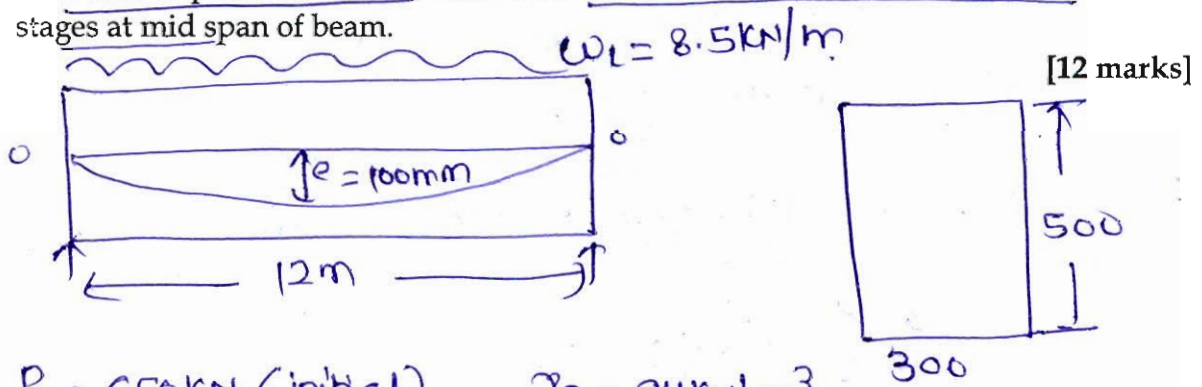 stages at mid span of beam.
ω_L = 8.5KN/m
[12 marks]
0
0
e = 100mm
500
12m
300
(initial)